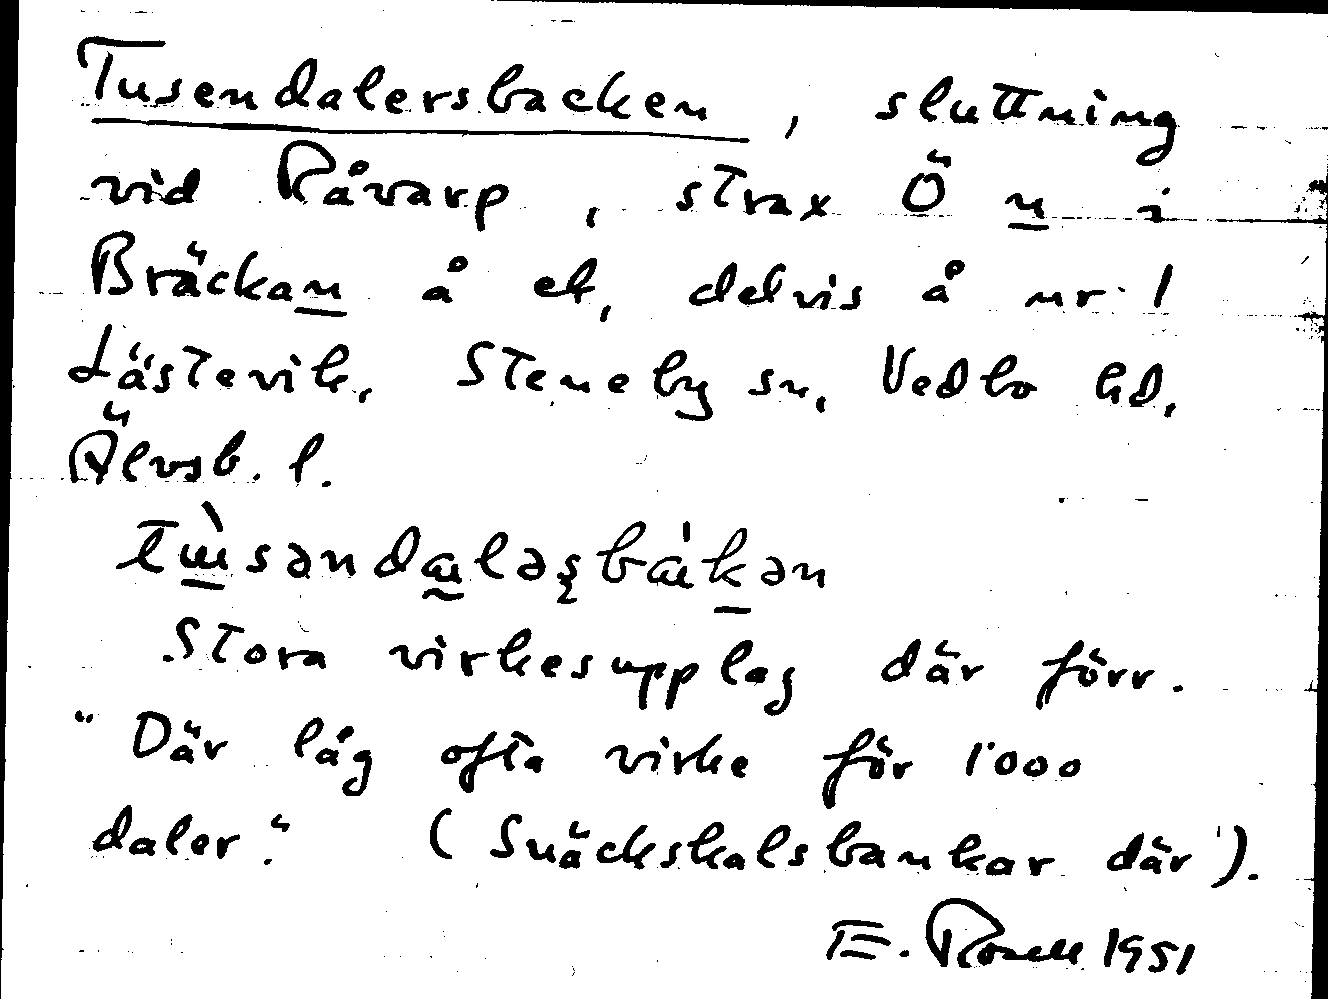 Tusendalersbacken, sluttning
vid Råvarp, strax Ö n i
Bräckan å ek, delvis å nr 1
Lästevik, Steneby sn, Vedbo hd,
Älvsb. l.
Stora virkesupplag där förr.
"Där låg ofta virke för 1'000
daler." (Snäckskalsbankar där).
E. Rosell 1951